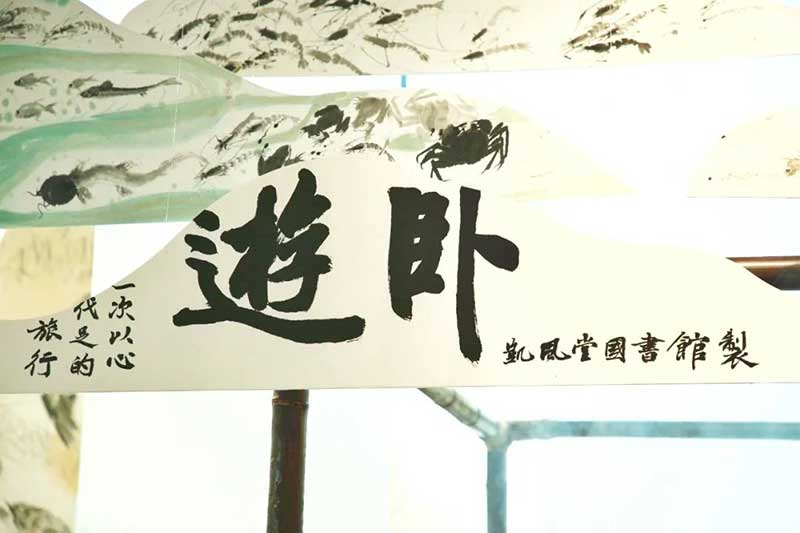 卧遊
凱風堂圖書館製
一次以心
代足的
旅行